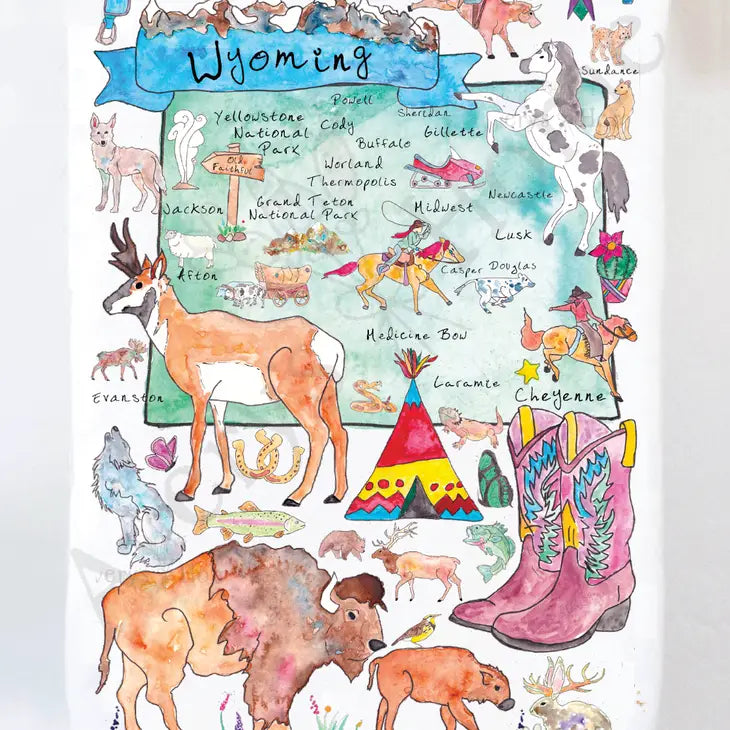 Wyoming
Sundance
Powell
Sheridan
Yellowstone
National
Park
Cody
Gillette
Buffalo
Old
Faithful
Worland
Thermopolis
Newcastle
Jackson
Grand Teton
National Park
Midwest
Lusk
Afton
Casper
Douglas
Medicine Bow
Evanston
Laramie
Cheyenne